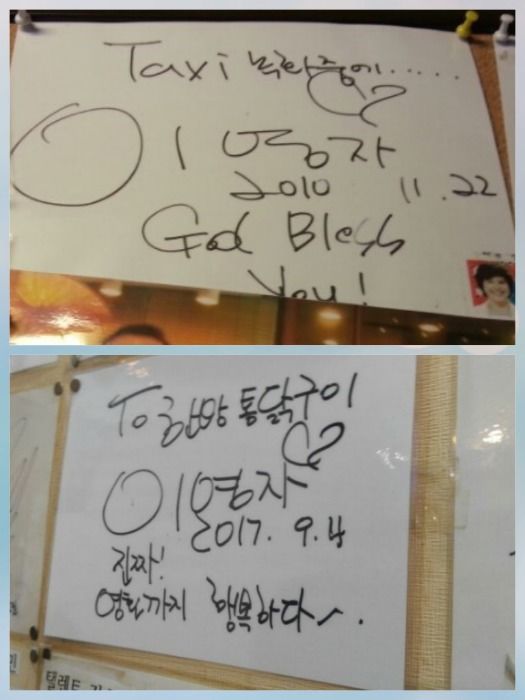 Taxi 녹화중에.....
이영자
2010 11.22
God Bless
You!
To 한방통닭구이
이영자
2017. 9.4
진짜!
영혼까지 행복하다~.
텔렌트